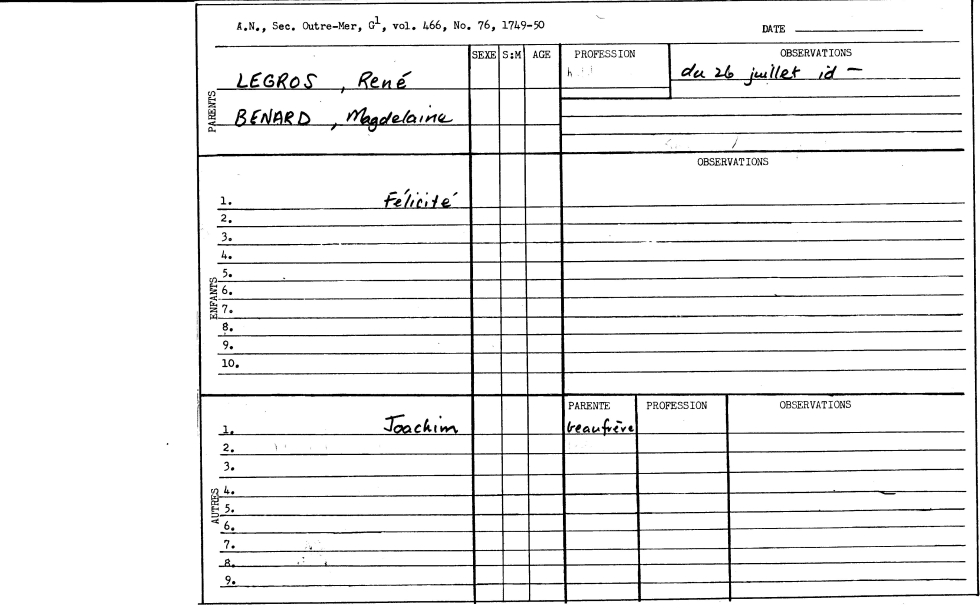 A.N., Sec. Outre-Mer, G1, vol. 466, No. 76, 1749-50
DATE
SEXE S:M AGE PROFESSION OBSERVATIONS
PARENTS
LEGROS, René du 26 juillet id -
BENARD, Magdelaine
OBSERVATIONS
ENFANTS
1. Félicité
2.
3.
4.
5.
6.
7.
8.
9.
10.
PARENTE PROFESSION OBSERVATIONS
AUTRES
1. Joachim beaufrère
2.
3.
4.
5.
6.
7.
8.
9.